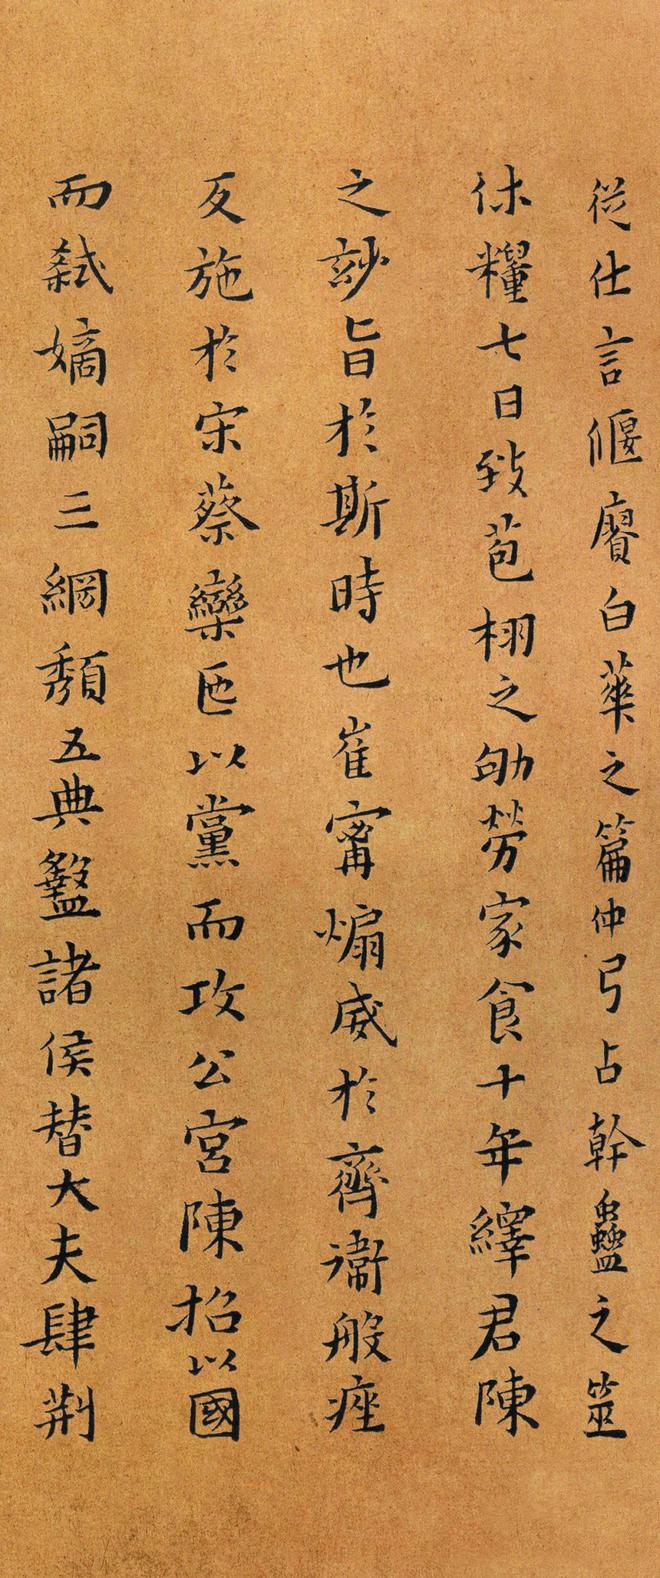 從仕言偃賡白華之篇仲弓占幹蠱之筮
休糧七日致苞栩之劬勞家食十年繹君陳
之妙旨於斯時也崔寗煽威於齊衞般痤
反施於宋蔡欒匜以黨而攻公宮陳招以國
而弑嫡嗣三綱頹五典盭諸侯替大夫肆荆